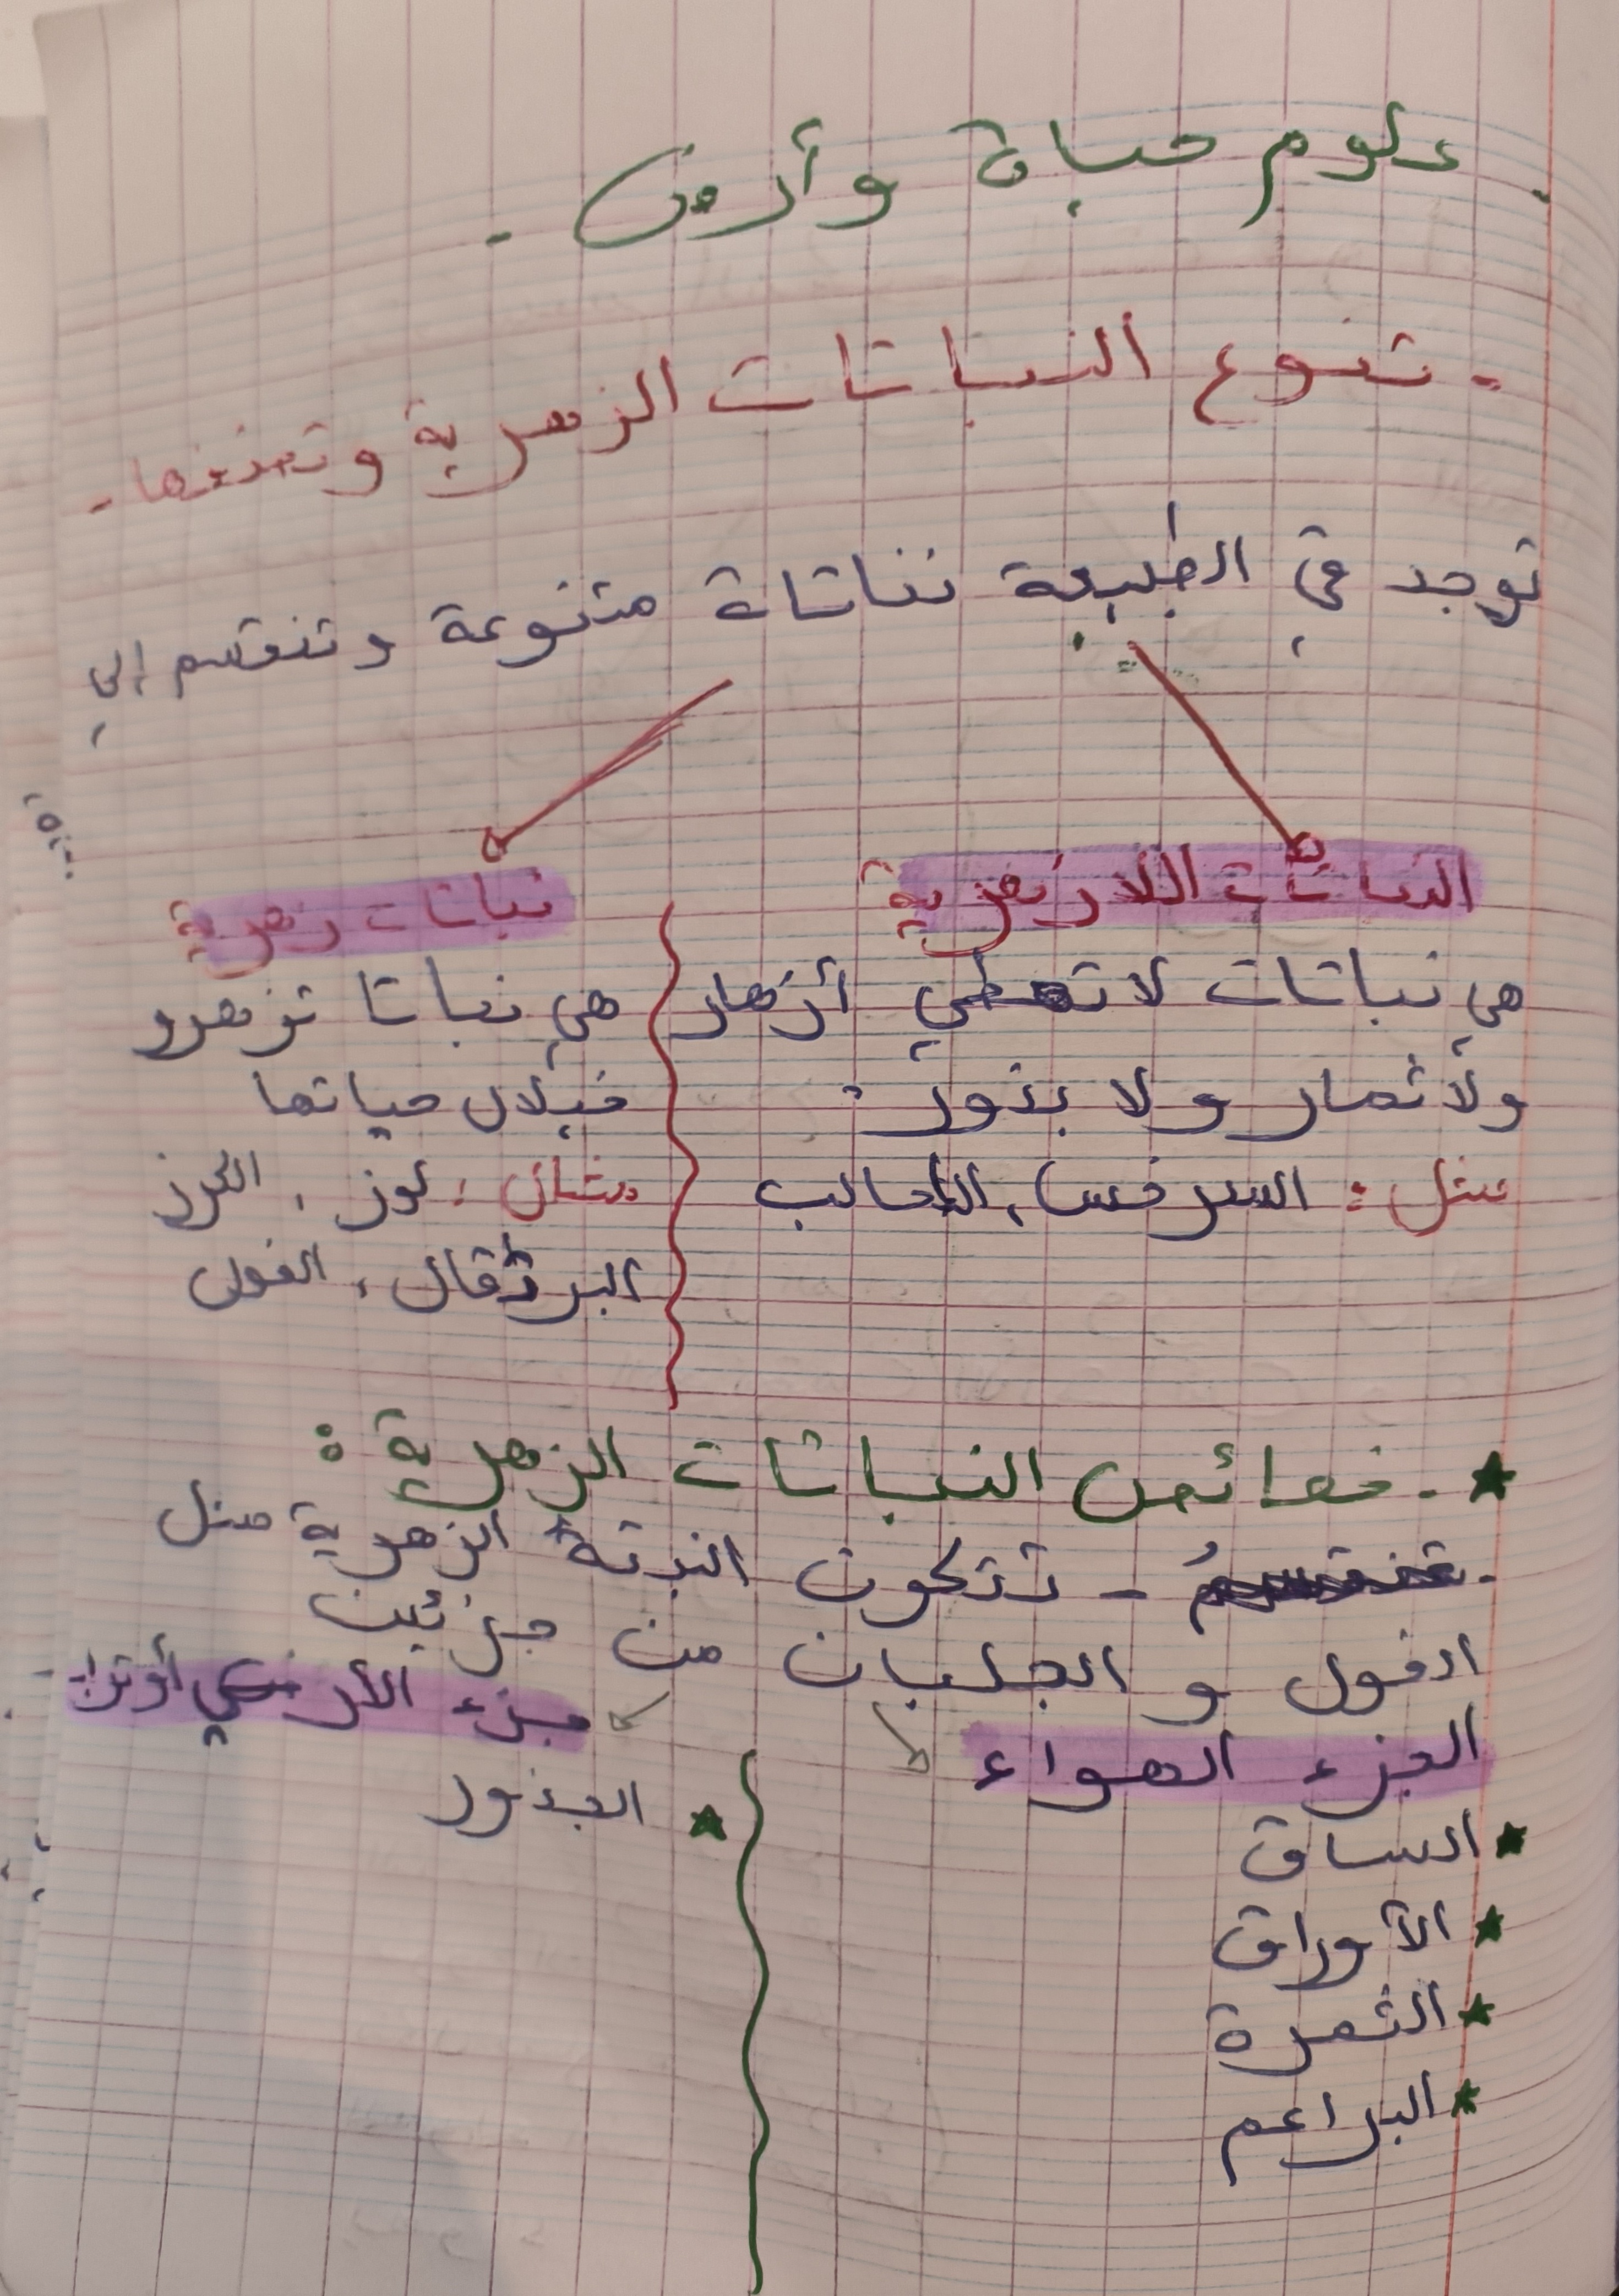 علوم حياة وأرض .
- تنوع النباتات الزهرية وتصنفها -
توجد في الطبيعة نباتاة متنوعة وتنقسم إلى
النباتات اللازهرية
هي نباتات لا تعطي أزهار
ولا ثمار ولا بذور .
مثل : السرخس ، الطحالب
نباتات زهرية
هي نباتا تزهرو
خلال حياتها
مثال : لوز ، الكرز
البرتقال ، الفول
★ - خصائص النباتات الزهرية :
- تتكون النبتة الزهرية مثل
الفول و الجلبان من جزئين
الجزء الهواء
★ الساق
★ الأوراق
★ الثمرة
★ البراعم
جزء الأرضي أو
★ الجذور